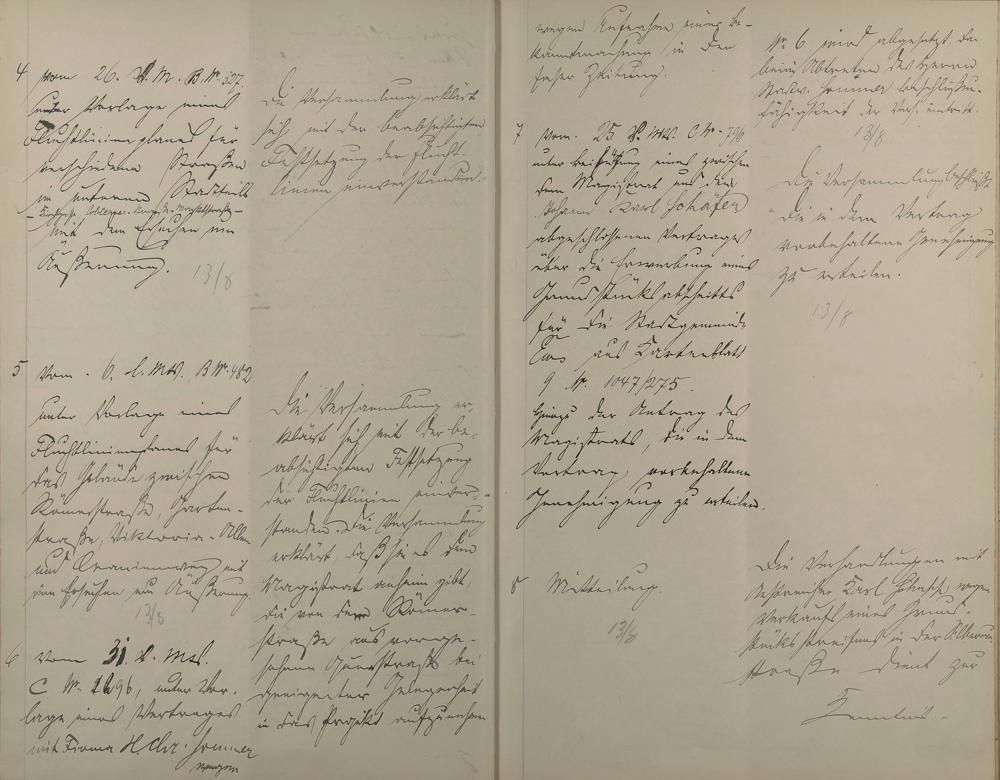 4 vom 26. v. M. B. Nr. 327.
unter Vorlage eines
Fluchtlinienplanes für
verschiedene Straßen
im unteren Stadtteil
mit dem Ersuchen um
Äußerung.
13/8
Die Versammlung erklärt
sich mit der beabsichtigten
Festsetzung der Flucht-
linien einverstanden.
5 vom 6. l. Mts., B Nr. 482
unter Vorlage eines
Fluchtlinienplanes für
das Gelände zwischen
Römerstraße, Garten-
straße, Viktoria-Allee
und mit
dem Ersuchen um Äußerung.
13/8
Die Versammlung er-
klärt sich mit der be-
absichtigten Festsetzung
der Fluchtlinien einver-
standen. Die Versammlung
erklärt, daß sie es dem
Magistrat anheim gibt,
die von der Römer-
straße aus vorge-
sehene Querstraße bei
geeigneter Gelegenheit
in das Projekt aufzunehmen
6 vom 31. v. Mts.
C Nr. 1296, unter Vor-
lage eines Vertrages
mit Firma H. Chr. Sommer
wegen Aufnahme einer Be-
kanntmachung in den
Emser Zeitung.
Nr. 6 wird abgesetzt, da
beim Abtreten des Herrn
Stadtv. Sommer Beschlußun-
fähigkeit der Vers. eintritt.
13/8
7 vom 25 v. Mts. C Nr. 796
unter Beifügung eines zwischen
dem Magistrat und dem
Johann Karl
abgeschlossenen Vertrages
über die Erwerbung eines
Grundstücksabschnitts
für die Stadtgemeinde
Ems aus Kartenblatt
9 Nr. 1047/275.
Hierzu der Antrag des
Magistrats, die in dem
Vertrag vorbehaltene
Genehmigung zu erteilen.
Die Versammlung beschließt
die in dem Vertrag
vorbehaltene Genehmigung
zu erteilen.
13/8
8 Mitteilung.
13/8
Die Verhandlungen mit
Karl wegen
Verkaufs eines Grund-
stücksstreifens in der
straße dient zur
Kenntnis.